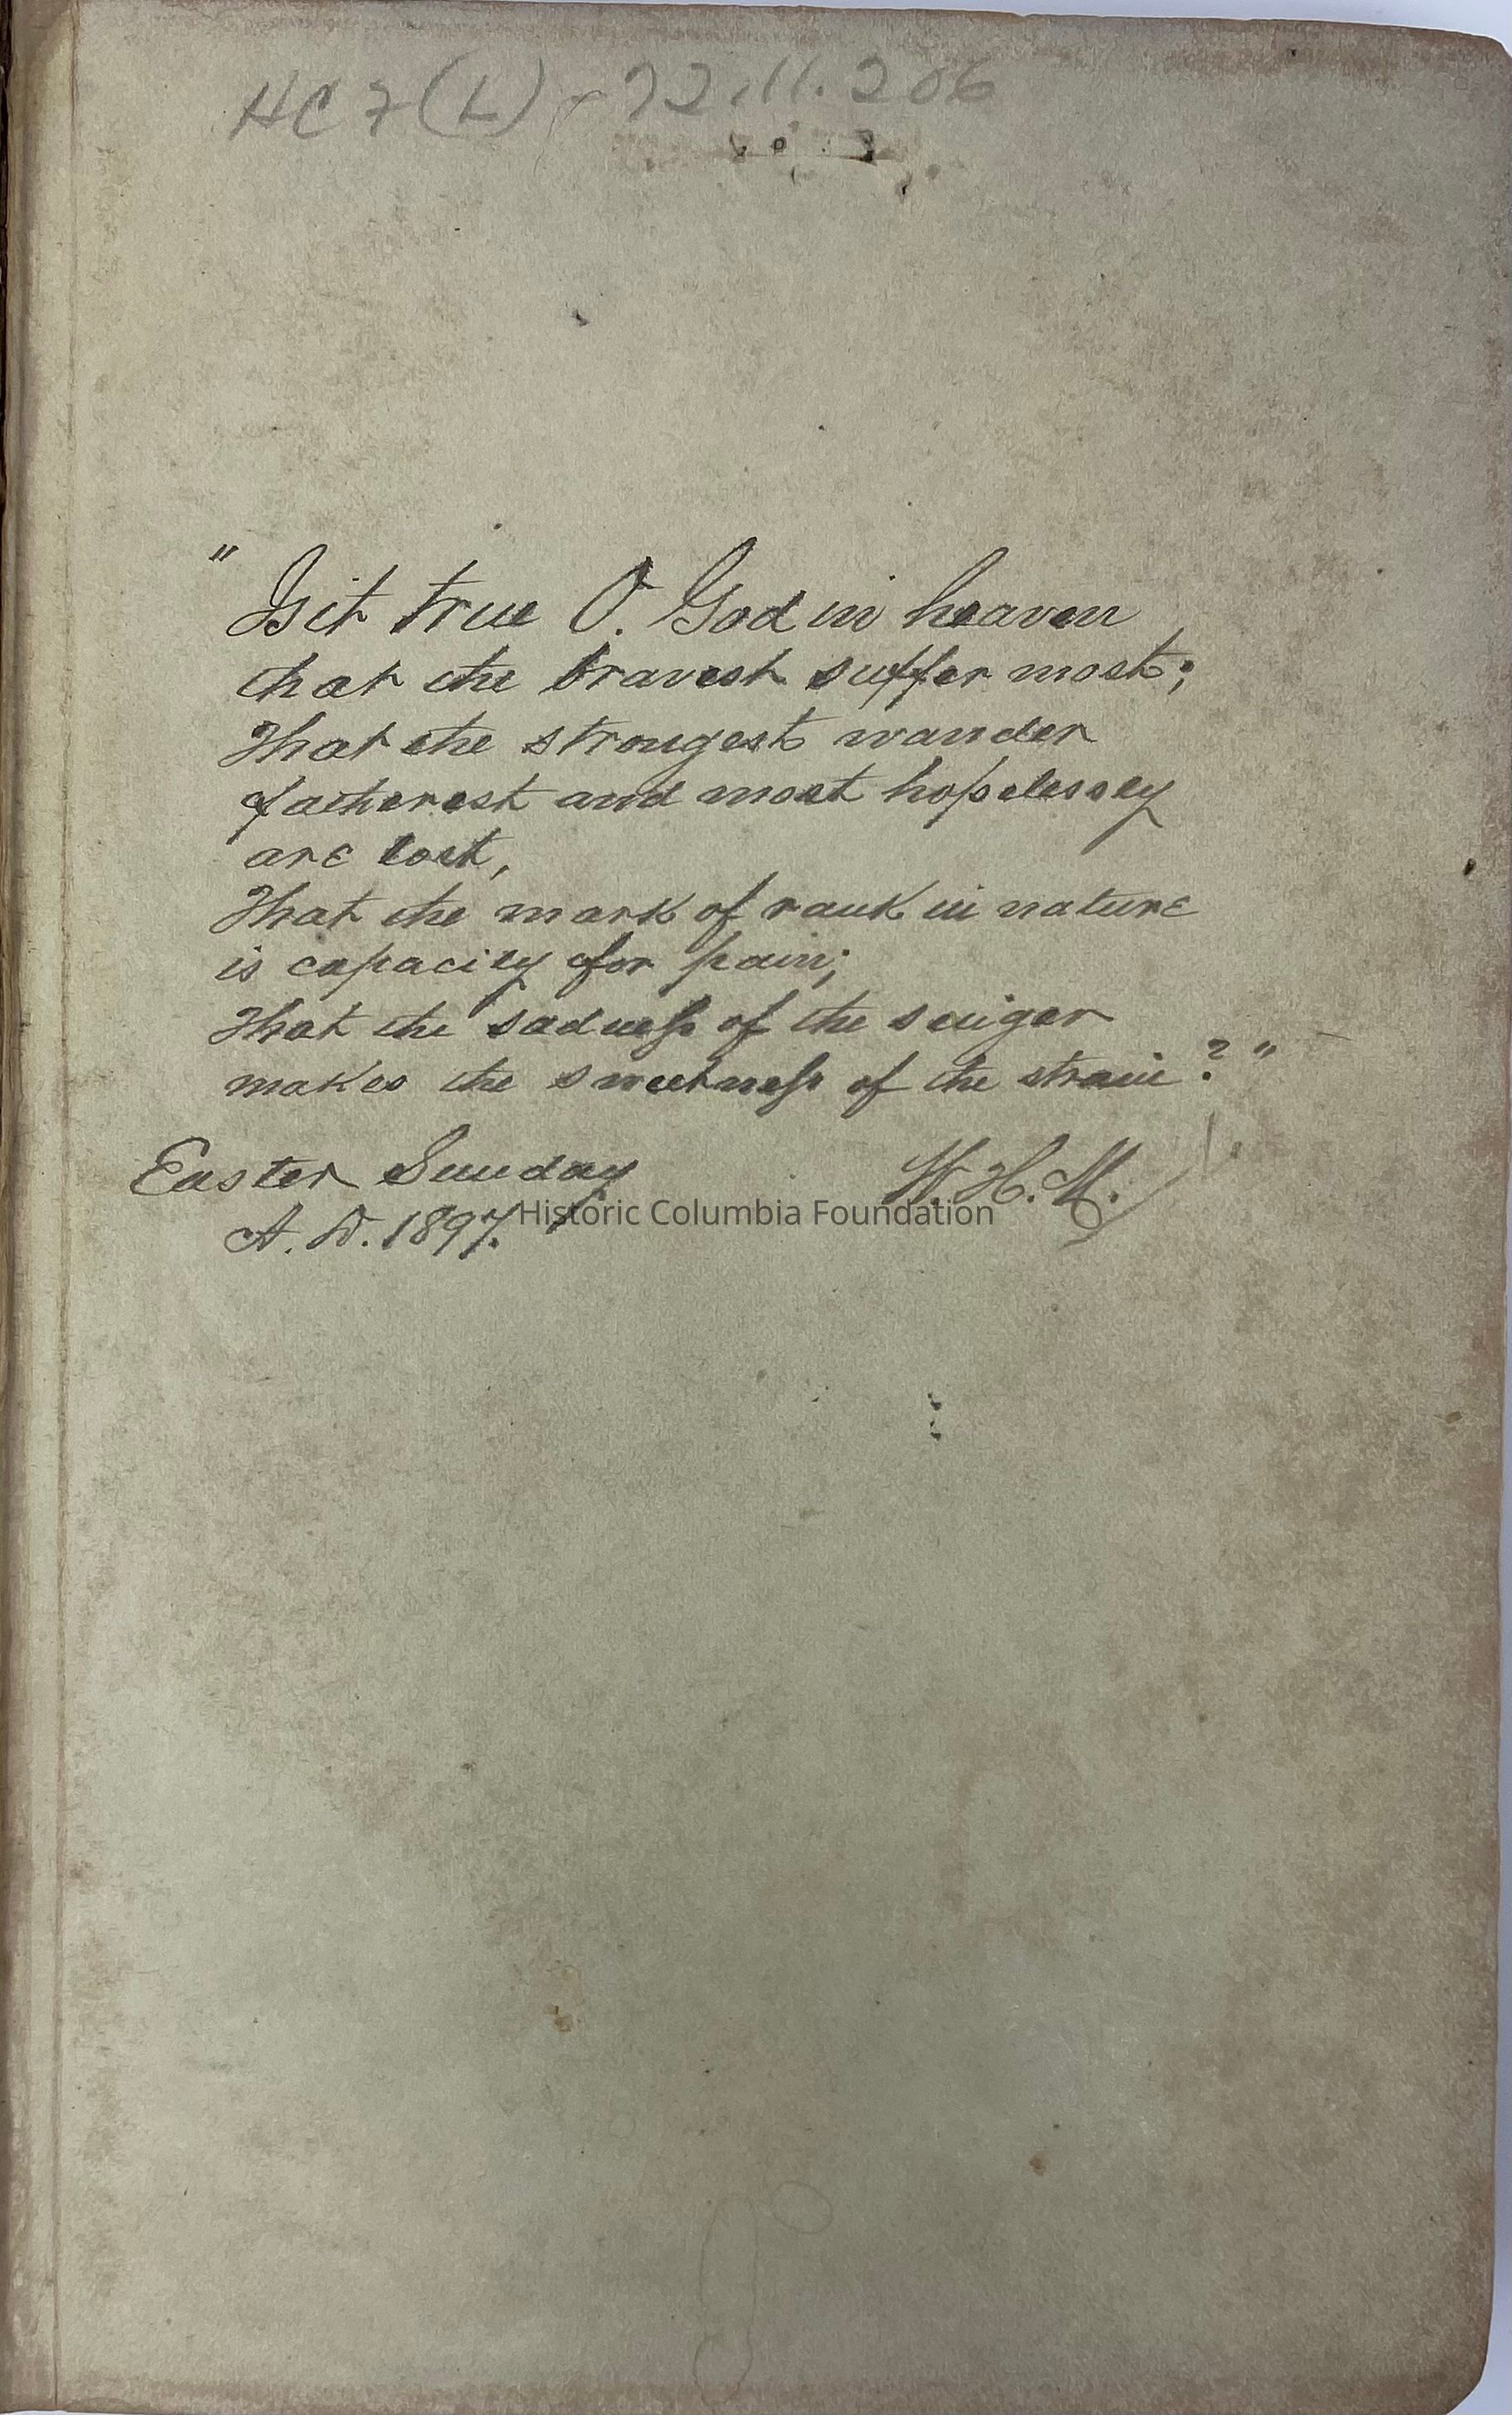 HC 7(L) - 72.11.206
"Is it true O. God in heaven
that the bravest suffer most;
That the strongest wander
fatherest and most hopelessly
are lost,
That the mark of rank in nature
is capacity for pain;
That the sadness of the singer
makes the sweetness of the strain?"
Easter Sunday W. H. M.
A. D. 1897.
Historic Columbia Foundation